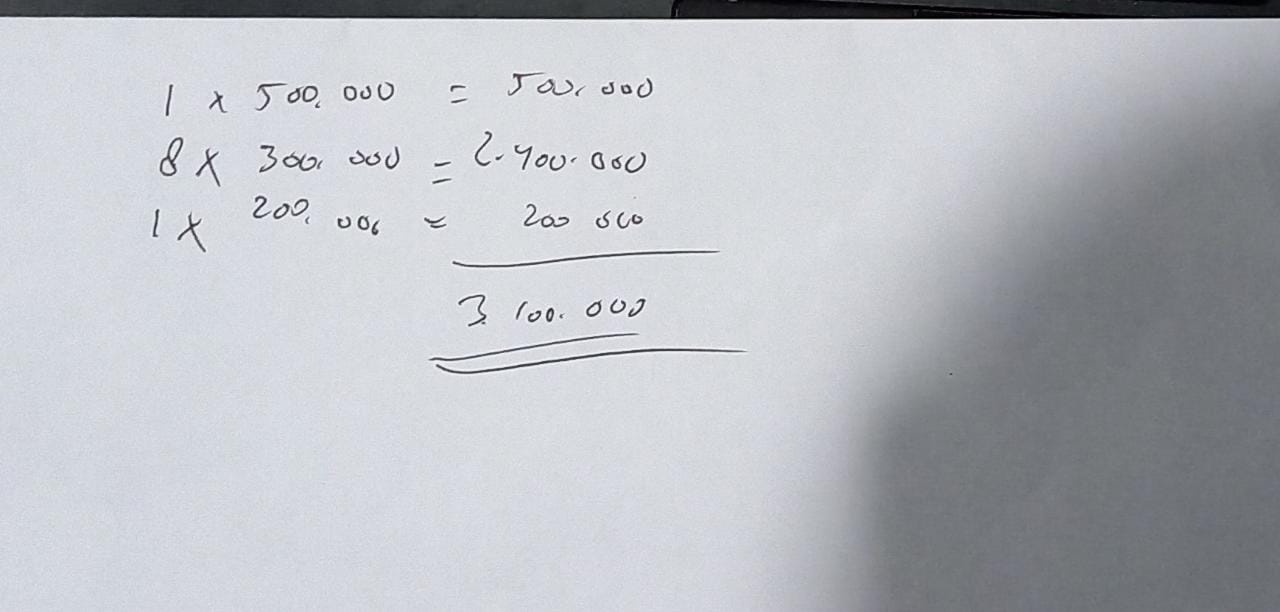 1 x 500.000 = 500.000
8 x 300.000 = 2.400.000
1 x 200.000 = 200 000
3.100.000